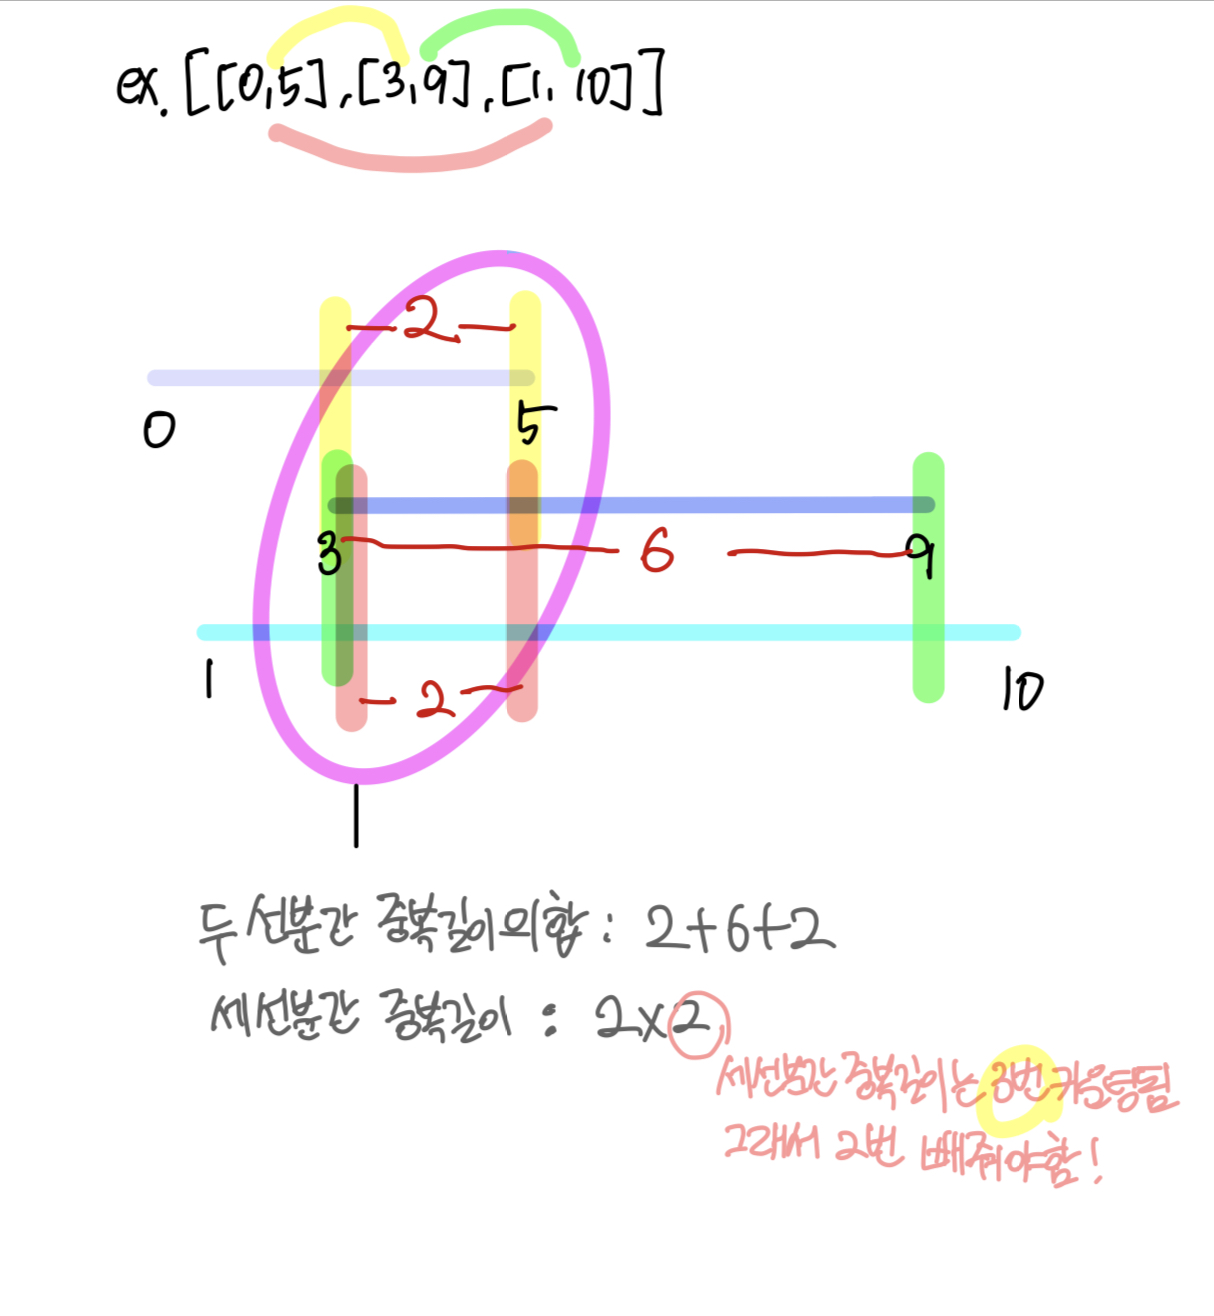 ex. [[0,5],[3,9],[1,10]]
2
0
5
3
6
9
1
10
2
두 선분간 중복길이의 합 : 2+6+2
세선분간 중복길이 : 2x2
세선분간 중복길이는 3번 카운팅됨
그래서 2번 빼줘야함!